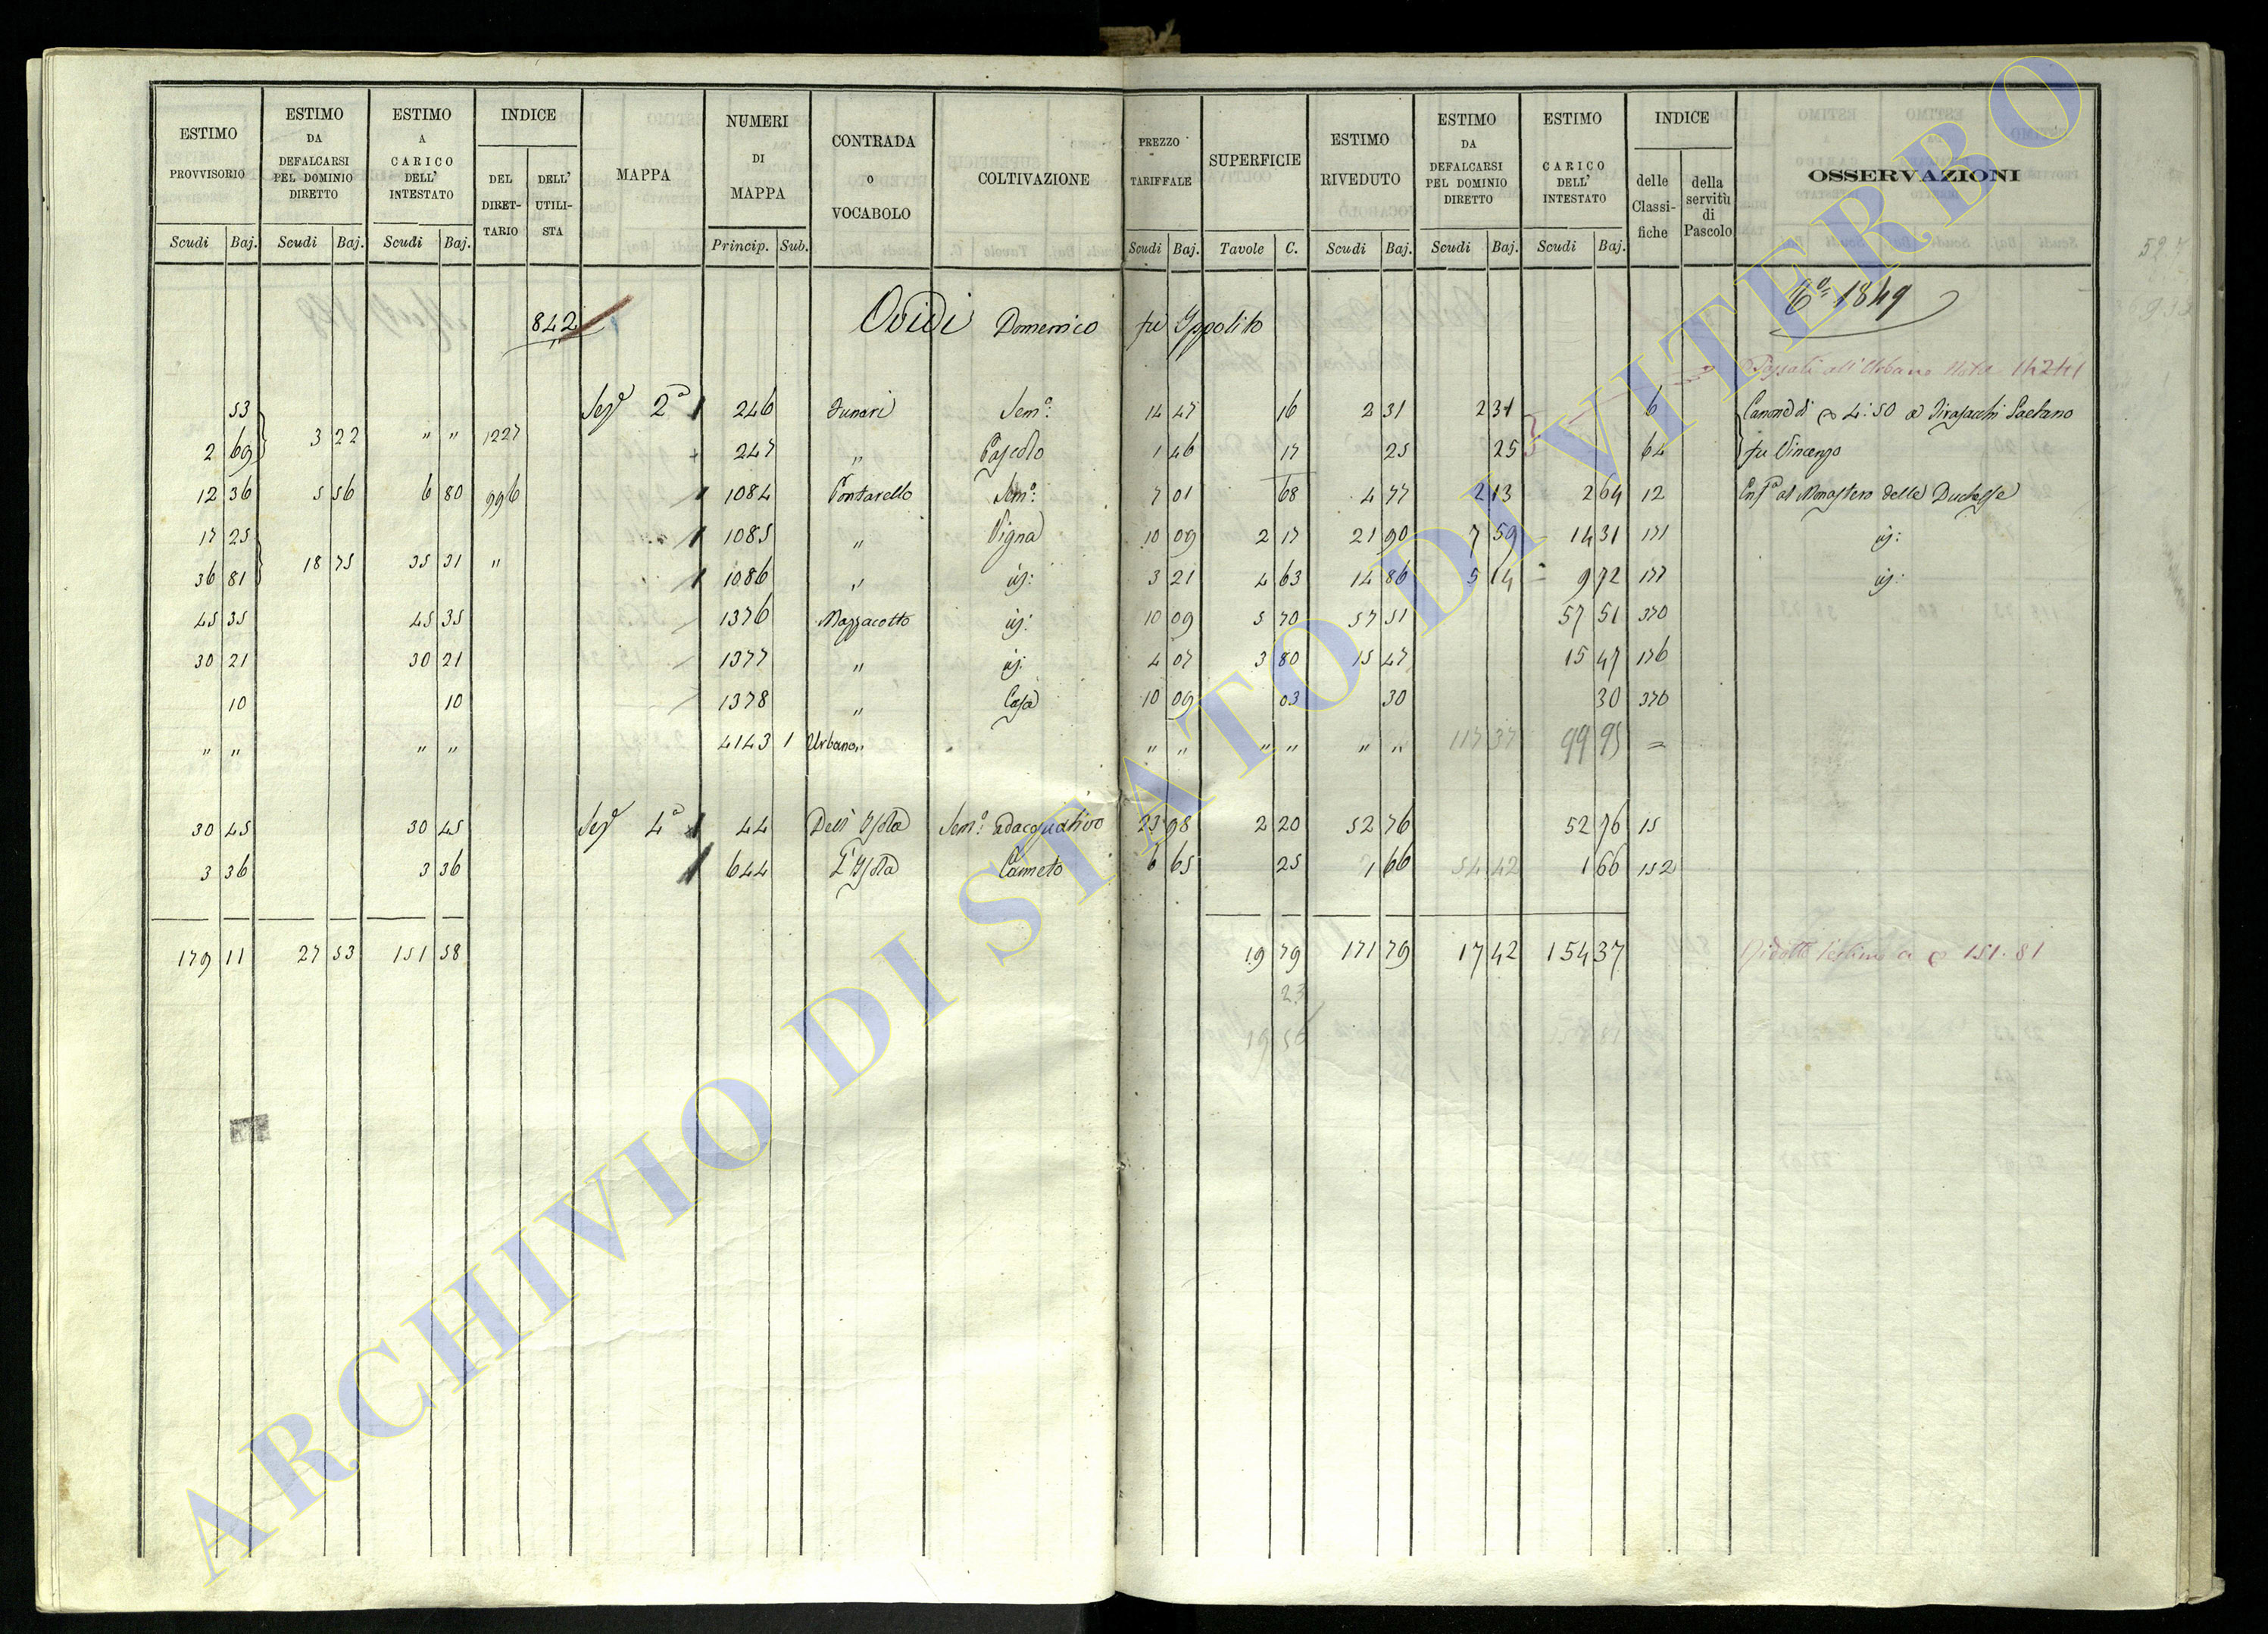 ESTIMO PROVVISORIO | ESTIMO DA DEFALCARSI PEL DOMINIO DIRETTO | ESTIMO A CARICO DELL' INTESTATO | INDICE DEL DIRETTARIO | DELL' UTILISTA | MAPPA | NUMERI DI MAPPA | CONTRADA O VOCABOLO | COLTIVAZIONE | PREZZO TARIFFALE | SUPERFICIE | ESTIMO RIVEDUTO | ESTIMO DA DEFALCARSI PEL DOMINIO DIRETTO | ESTIMO A CARICO DELL' INTESTATO | INDICE delle Classifiche | della servitù di Pascolo | OSSERVAZIONI
Scudi Baj. | Scudi Baj. | Scudi Baj. | Princip. Sub. | Scudi Baj. | Tavole C. | Scudi Baj. | Scudi Baj. | Scudi Baj.
842 Ovidi Domenico fu Ippolito 1849
Passati all'Urbano
53 | Sez.e 2a | 246 | Funari | Sem.o | 14 47 | 16 | 2 31 | 2 31 | 6 | Canone di 4:50 a Tirasacchi Gaetano
2 69 | 3 22 | " " | 1227 | 247 | " | Pascolo | 1 46 | 17 | 25 | 25 | 64 | fu Vincenzo
12 36 | 5 56 | 6 80 | 996 | 1084 | Pontarello | Sem.o | 7 01 | 68 | 4 77 | 2 13 | 2 64 | 12 | Enf.a al Monastero delle Duchesse
17 25 | 1085 | " | Vigna | 10 09 | 2 17 | 21 90 | 7 59 | 14 31 | 171 | id:
36 81 | 18 75 | 35 31 | " | 1086 | " | id: | 3 21 | 4 63 | 14 86 | 5 14 | 9 72 | 177 | id:
45 35 | 45 35 | 1376 | Mazzacotto | id: | 10 09 | 5 70 | 57 51 | 57 51 | 370
30 21 | 30 21 | 1377 | " | id: | 4 07 | 3 80 | 15 47 | 15 47 | 176
10 | 10 | 1378 | " | Casa | 10 09 | 03 | 30 | 30 | 370
" " | " " | 4143 1 | Urbano | " " | " " | " " | 117 37 | 99 95 | =
30 45 | 30 45 | Sez.e 4a | 44 | Dell'Isola | Sem.o adacquativo | 23 98 | 2 20 | 52 76 | 52 76 | 15
3 36 | 3 36 | 644 | L'Isola | Canneto | 6 65 | 25 | 1 66 | 54 42 | 1 66 | 152
179 11 | 27 53 | 151 58 | 19 79 | 171 79 | 17 42 | 154 37 | Ridotto l'estimo a 151.81
23
19 56
ARCHIVIO DI STATO DI VITERBO